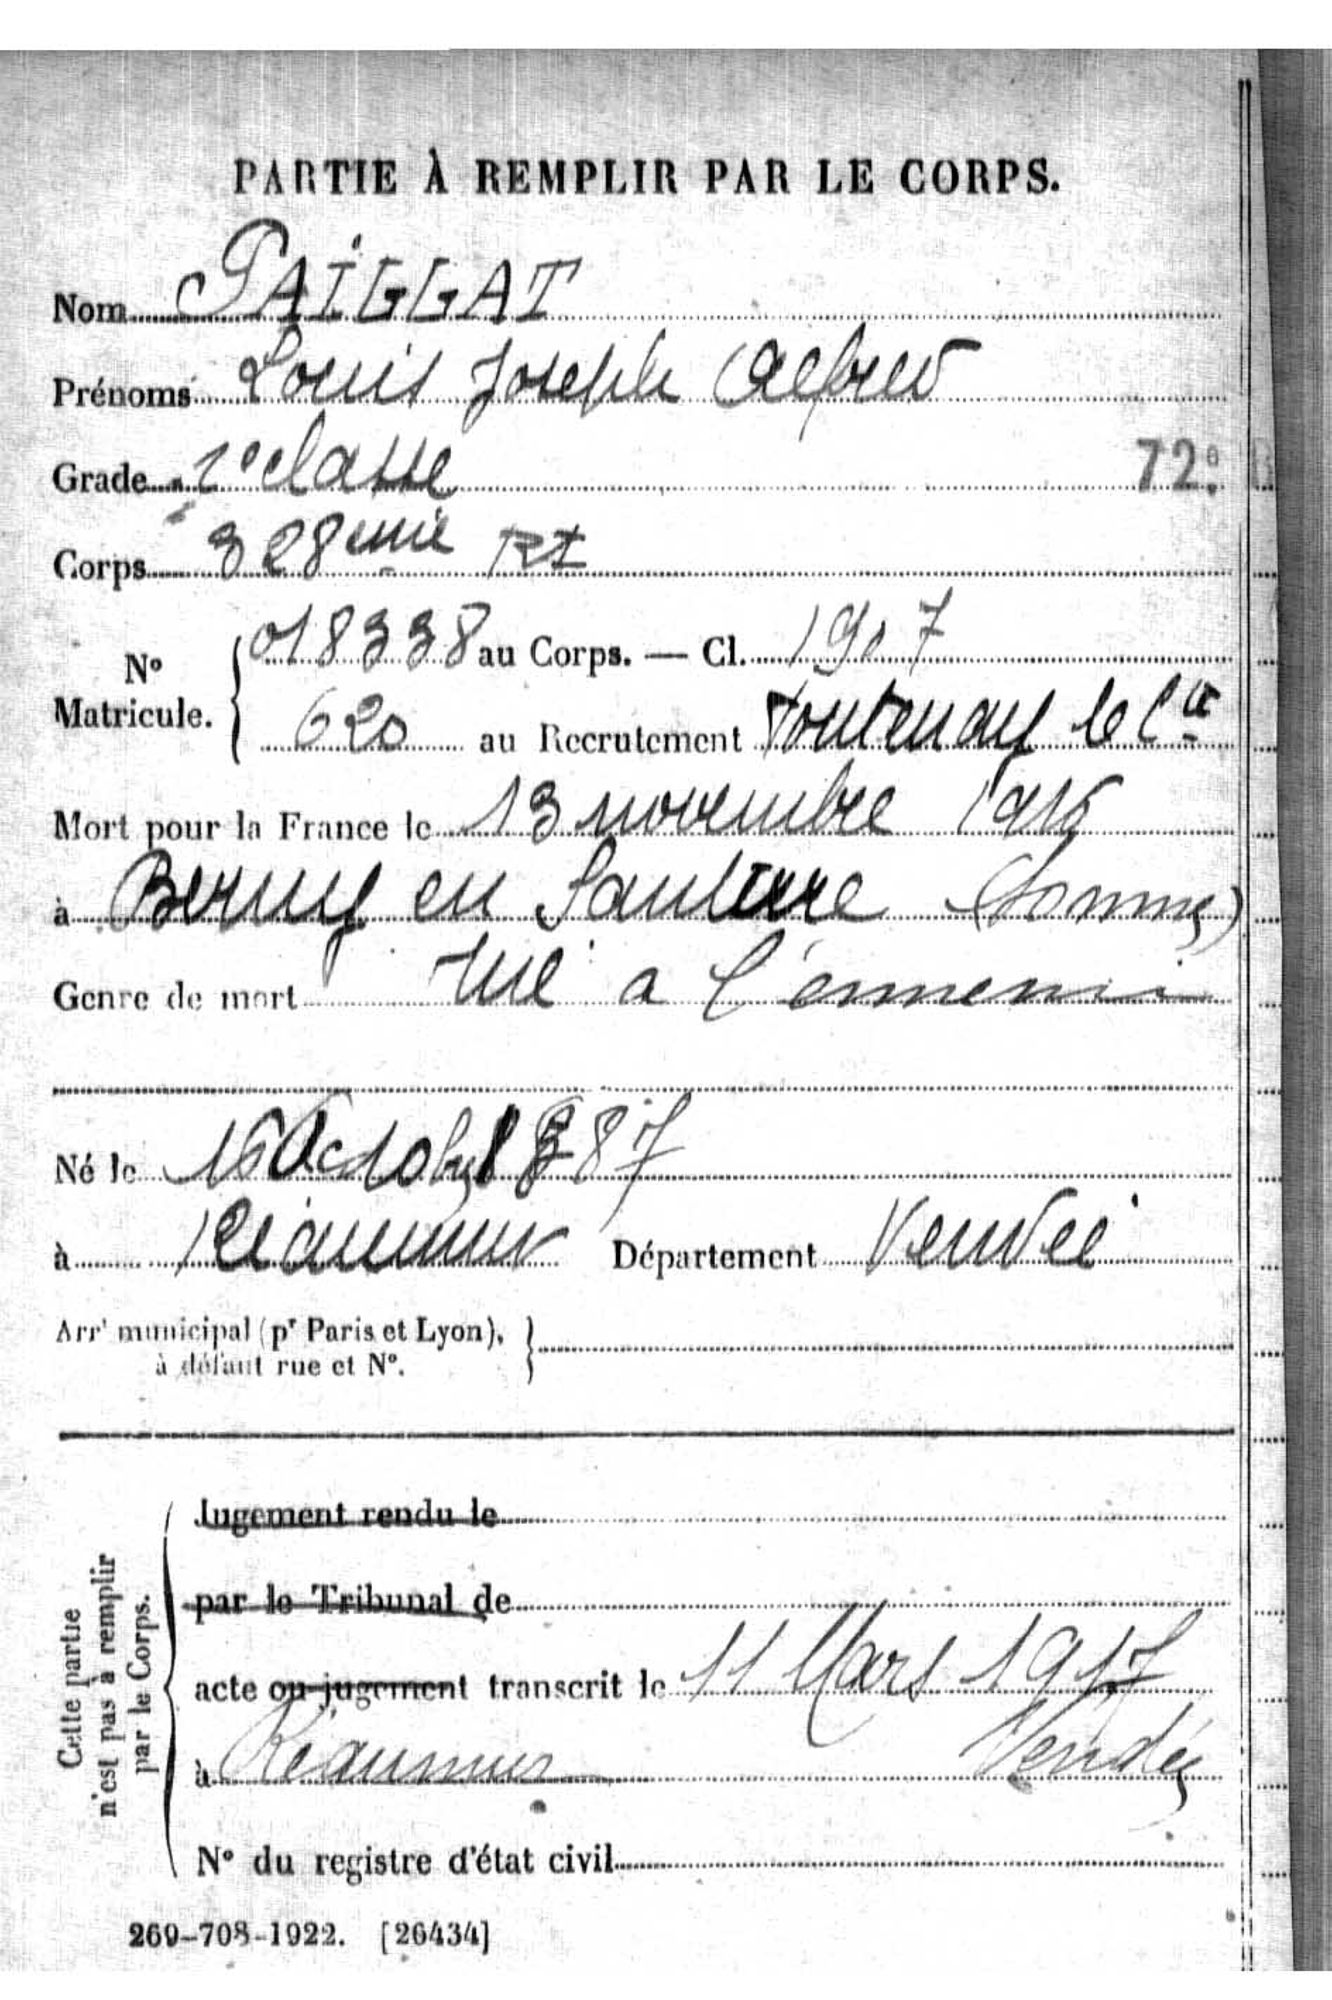 PARTIE À REMPLIR PAR LE CORPS.
Nom PAIGGAT
Prénoms Louis Joseph Alfred
Grade 2e classe
72e
Corps 328eme RI
No Matricule. { 018338 au Corps. — Cl. 1907
620 au Recrutement Fontenay le Cte
Mort pour la France le 13 novembre 1916
à Berny en Santerre (Somme)
Genre de mort tué a l'ennemi
Né le 16 Octobre 1887
à Réaumur Département Vendée
Arrt municipal (pr Paris et Lyon), }
à défaut rue et No.
Cette partie n'est pas à remplir par le Corps.
Jugement rendu le
par le Tribunal de
acte ou jugement transcrit le 11 Mars 1917
à Réaumur Vendée
No du registre d'état civil
269-708-1922. [26434]